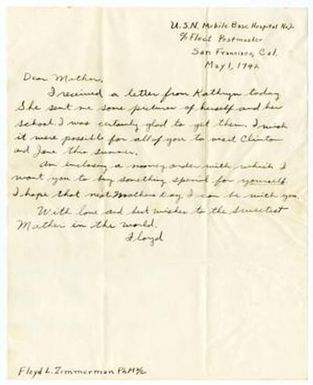 U.S.N. Mobile Base Hospital No. 2
℅ Fleet Postmaster
San Francisco, Cal.
May 1, 1942
Dear Mother,
I received a letter from Kathryn today
She sent me some pictures of herself and her
school. I was certainly glad to get them. I wish
it were possible for all of you to visit Clinton
and Jane the summer.
Am enclosing a money order with which I
want you to buy something special for yourself.
I hope that next Mothers Day I can be with you.
With love and best wishes to the sweetest
Mother in the world.
Floyd
Floyd L. Zimmerman PhM